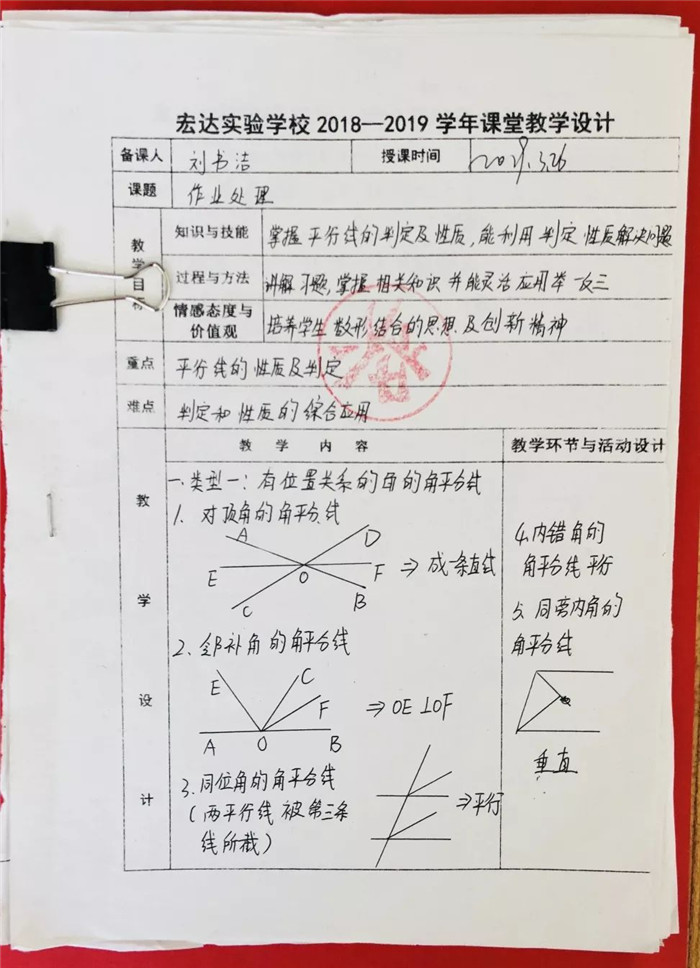 宏达实验学校2018—2019学年课堂教学设计
备课人 刘书洁 授课时间 2019.3.26
课题 作业处理
教学目标
知识与技能 掌握平行线的判定及性质,能利用判定性质解决问题
过程与方法 讲解习题,掌握相关知识并能灵活应用举一反三
情感态度与价值观 培养学生数形结合的思想及创新精神
重点 平行线的性质及判定
难点 判定和性质的综合应用
教学设计
教学内容
一.类型一:有位置关系的角的角平分线
1.对顶角的角平分线
A D
E O F ⇒成一条直线
C B
2、邻补角的角平分线
E C
F ⇒OE⊥OF
A O B
3.同位角的角平分线
(两平行线被第三条
线所截)
⇒平行
教学环节与活动设计
4.内错角的
角平分线平行
5、同旁内角的
角平分线
垂直